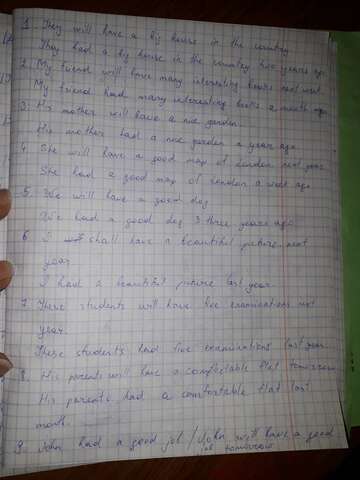 1. They will have a big house in the country.
They had a big house in the country two years ago
2. My friend will have many interesting books next
My friend had many interesting books a month ago
3. His mother will have a nice garden
His mother had a nice garden a year ago
4. She will have a good map of London next year
She had a good map of London a week ago
5. We will have a good dog
We had a good dog three years ago
6. I shall have a beautiful picture next
year.
I had a beautiful picture last year.
7. These students will have five examinations next
year.
These students had five examinations last year
8. His parents will have a comfortable flat tomorrow
His parents had a comfortable flat last
month.
9. John had a good job / John will have a good
job tomorrow